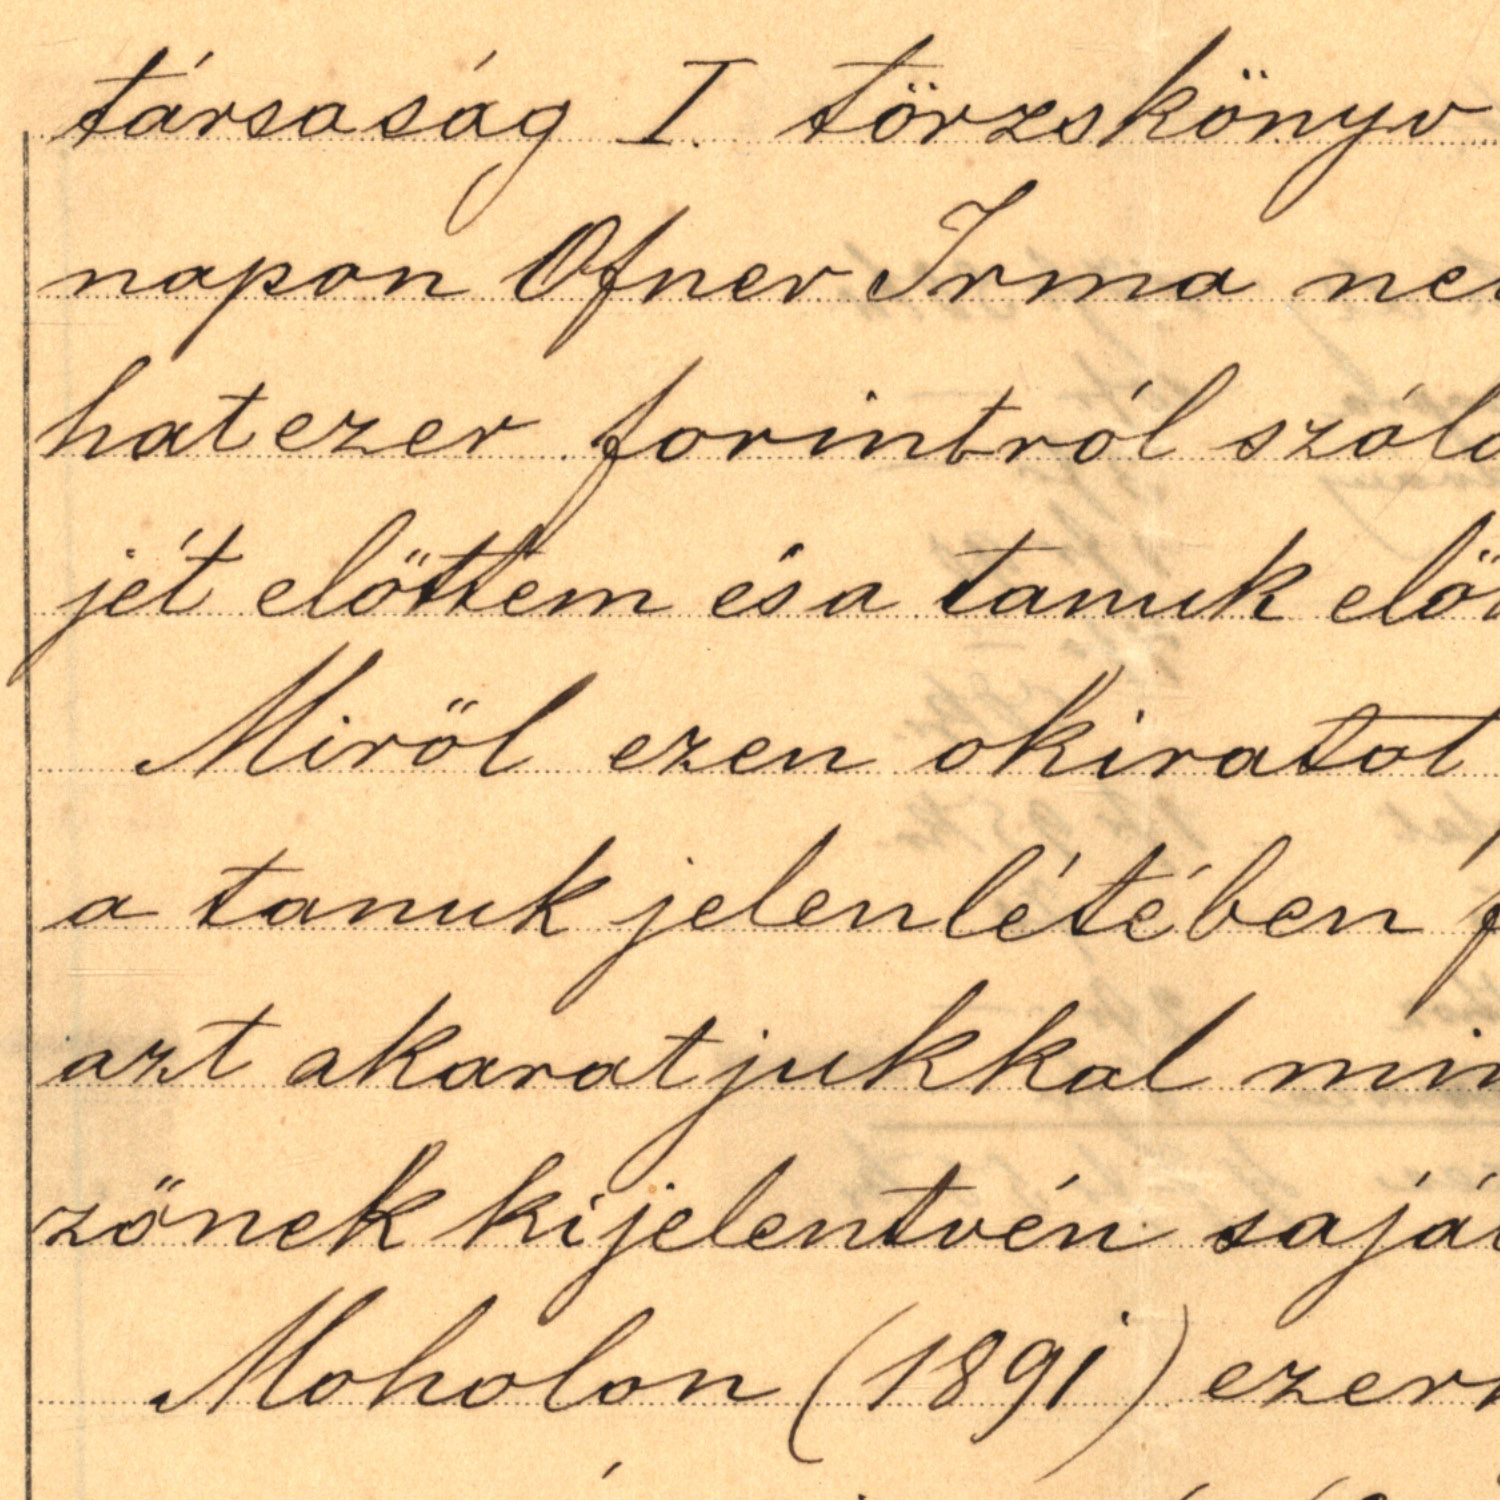 társaság I. törzskönyv
napon Ofner Irma
hatezer forintról
jét előttem és a tanuk
Miről ezen okiratot
a tanuk jelenlétében
azt akaratjukkal
zőnek kijelentvén
Moholon (1891)